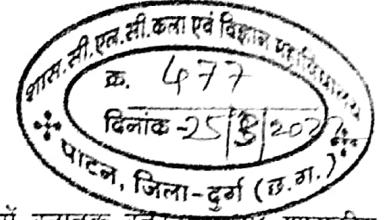 शास. सी.एल.सी. कला एवं विज्ञान महाविद्यालय
क्र. 477
दिनांक -25/8/202
पाटन, जिला-दुर्ग (छ.ग.)